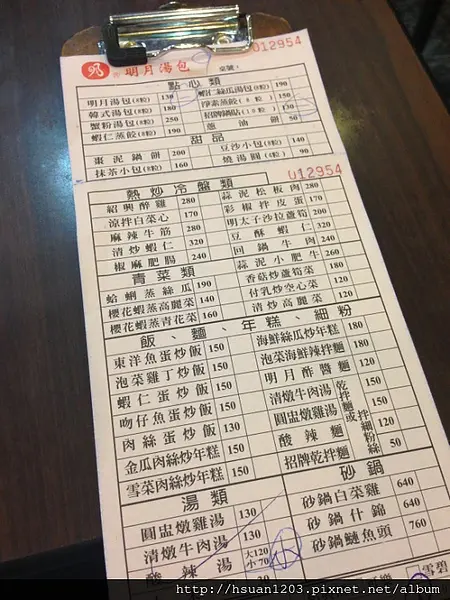 012954
明月湯包 桌號:
點心類
明月湯包(8粒) 130 蝦仁絲瓜湯包(8粒) 190
韓式湯包(8粒) 180 淨素蒸餃(8粒) 150
蟹粉湯包(8粒) 250 招牌鍋貼(10粒) 130
蝦仁蒸餃(8粒) 190 蔥油餅 50
甜品
棗泥鍋餅 200 豆沙小包(8粒) 140
抹茶小包(8粒) 160 燒湯圓(8粒) 90
012954
熱炒冷盤類
紹興醉雞 280 蒜泥松板肉 280
涼拌白菜心 170 彩椒拌皮蛋 170
麻辣牛筋 280 明太子沙拉蘆筍 200
清炒蝦仁 320 豆酥蝦仁 320
椒麻肥腸 240 回鍋牛肉 240
青菜類 蒜泥小肥牛 260
蛤蜊蒸絲瓜 190 香菇炒蘆筍菜 180
櫻花蝦蒸高麗菜 140 付乳炒空心菜 120
櫻花蝦蒸青花菜 160 清炒高麗菜 120
飯、麵、年糕、細粉
東洋魚蛋炒飯 150 海鮮絲瓜炒年糕 180
泡菜雞丁炒飯 150 泡菜海鮮辣拌麵 180
蝦仁蛋炒飯 150 明月酢醬麵 120
吻仔魚蛋炒飯 150 清燉牛肉湯 乾拌麵或拌細粉絲 150
肉絲蛋炒飯 130 圓盅燉雞湯 150
金瓜肉絲炒年糕 150 酸辣麵 120
雪菜肉絲炒年糕 150 招牌乾拌麵 50
湯類 砂鍋
圓盅燉雞湯 130 砂鍋白菜雞 640
清燉牛肉湯 130 砂鍋什錦 640
酸辣湯 大120 小70 砂鍋鰱魚頭 760
雪碧
http://hsuan1203.pixnet.net/album